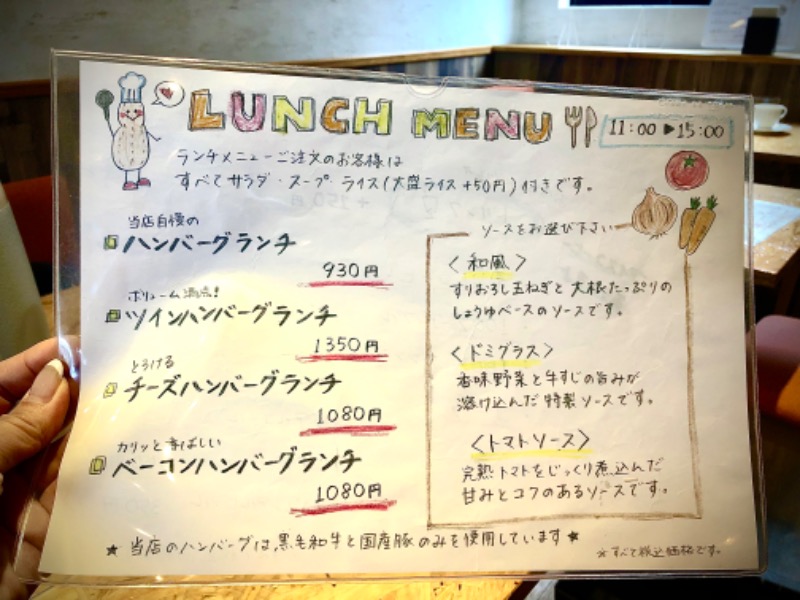 LUNCH MENU
11:00▶15:00
ランチメニューご注文のお客様は
すべてサラダ・スープ・ライス(大盛ライス+50円)付きです。
当店自慢の
ハンバーグランチ
930円
ボリューム満点!
ツインハンバーグランチ
1350円
とろける
チーズハンバーグランチ
1080円
カリッと香ばしい
ベーコンハンバーグランチ
1080円
ソースをお選び下さい
〈和風〉
すりおろし玉ねぎと大根たっぷりの
しょうゆベースのソースです。
〈ドミグラス〉
香味野菜と牛すじの旨みが
溶け込んだ特製ソースです。
〈トマトソース〉
完熟トマトをじっくり煮込んだ
甘みとコクのあるソースです。
★当店のハンバーグは、黒毛和牛と国産豚のみを使用しています★
※すべて税込価格です。